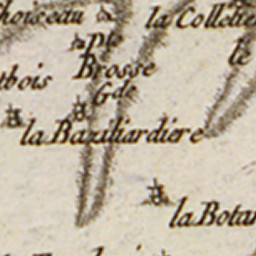 Choiseau
la Colletie
pte
Brosse
le
tbois
Gde
la Baziliardiere
la Botar